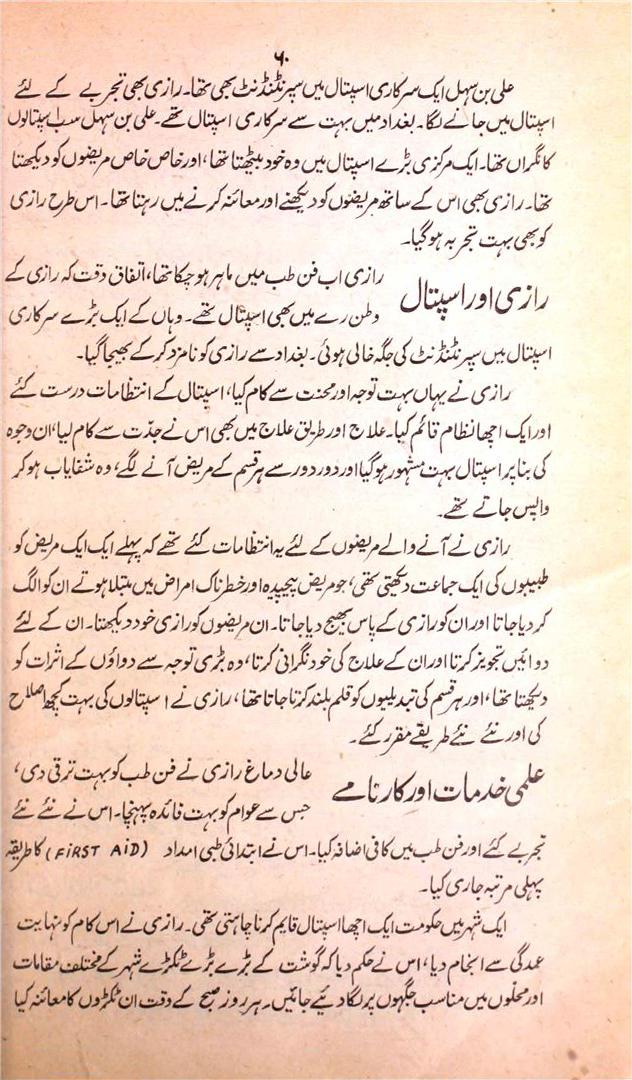 ۶۰
علی بن سہل ایک سرکاری اسپتال میں سپرنٹنڈنٹ بھی تھا۔ رازی بھی تجربے کے لئے
اسپتال میں جانے لگا۔ بغداد میں بہت سے سرکاری اسپتال تھے۔ علی بن سہل سب اسپتالوں
کا نگراں تھا۔ ایک مرکزی بڑے اسپتال میں وہ خود بیٹھتا تھا، اور خاص خاص مریضوں کو دیکھتا
تھا۔ رازی بھی اس کے ساتھ مریضوں کو دیکھنے اور معائنہ کرنے میں رہتا تھا۔ اس طرح رازی
کو بھی بہت تجربہ ہوگیا۔
رازی اور اسپتال
رازی اب فن طب میں ماہر ہو چکا تھا، اتفاق وقت کہ رازی کے
وطن رے میں بھی اسپتال تھے۔ وہاں کے ایک بڑے سرکاری
اسپتال میں سپرنٹنڈنٹ کی جگہ خالی ہوئی۔ بغداد سے رازی کو نامزد کر کے بھیجا گیا۔
رازی نے یہاں بہت توجہ اور محنت سے کام کیا، اسپتال کے انتظامات درست کئے
اور ایک اچھا نظام قائم کیا۔ علاج اور طریق علاج میں بھی اس نے جدّت سے کام لیا، ان وجوہ
کی بنا پر اسپتال بہت مشہور ہوگیا اور دور دور سے ہر قسم کے مریض آنے لگے، وہ شفایاب ہو کر
واپس جاتے تھے۔
رازی نے آنے والے مریضوں کے لئے یہ انتظامات کئے تھے کہ پہلے ایک ایک مریض کو
طبیبوں کی ایک جماعت دیکھتی تھی، جو مریض پیچیدہ اور خطرناک امراض میں مبتلا ہوتے ان کو الگ
کر دیا جاتا اور ان کو رازی کے پاس بھیج دیا جاتا۔ ان مریضوں کو رازی خود دیکھتا۔ ان کے لئے
دوائیں تجویز کرتا اور ان کے علاج کی خود نگرانی کرتا، وہ بڑی توجہ سے دواؤں کے اثرات کو
دیکھتا تھا، اور ہر قسم کی تبدیلیوں کو قلم بند کرتا جاتا تھا، رازی نے اسپتالوں کی بہت کچھ اصلاح
کی اور نئے نئے طریقے مقرر کئے۔
علمی خدمات اور کارنامے
عالی دماغ رازی نے فن طب کو بہت ترقی دی،
جس سے عوام کو بہت فائدہ پہنچا۔ اس نے نئے نئے
تجربے کئے اور فن طب میں کافی اضافہ کیا۔ اس نے ابتدائی طبی امداد (FIRST AID) کا طریقہ
پہلی مرتبہ جاری کیا۔
ایک شہر میں حکومت ایک اچھا اسپتال قایم کرنا چاہتی تھی۔ رازی نے اس کام کو نہایت
عمدگی سے انجام دیا، اس نے حکم دیا کہ گوشت کے بڑے بڑے ٹکڑے شہر کے مختلف مقامات
اور محلّوں میں مناسب جگہوں پر لگا دیئے جائیں۔ ہر روز صبح کے وقت ان ٹکڑوں کا معائنہ کیا